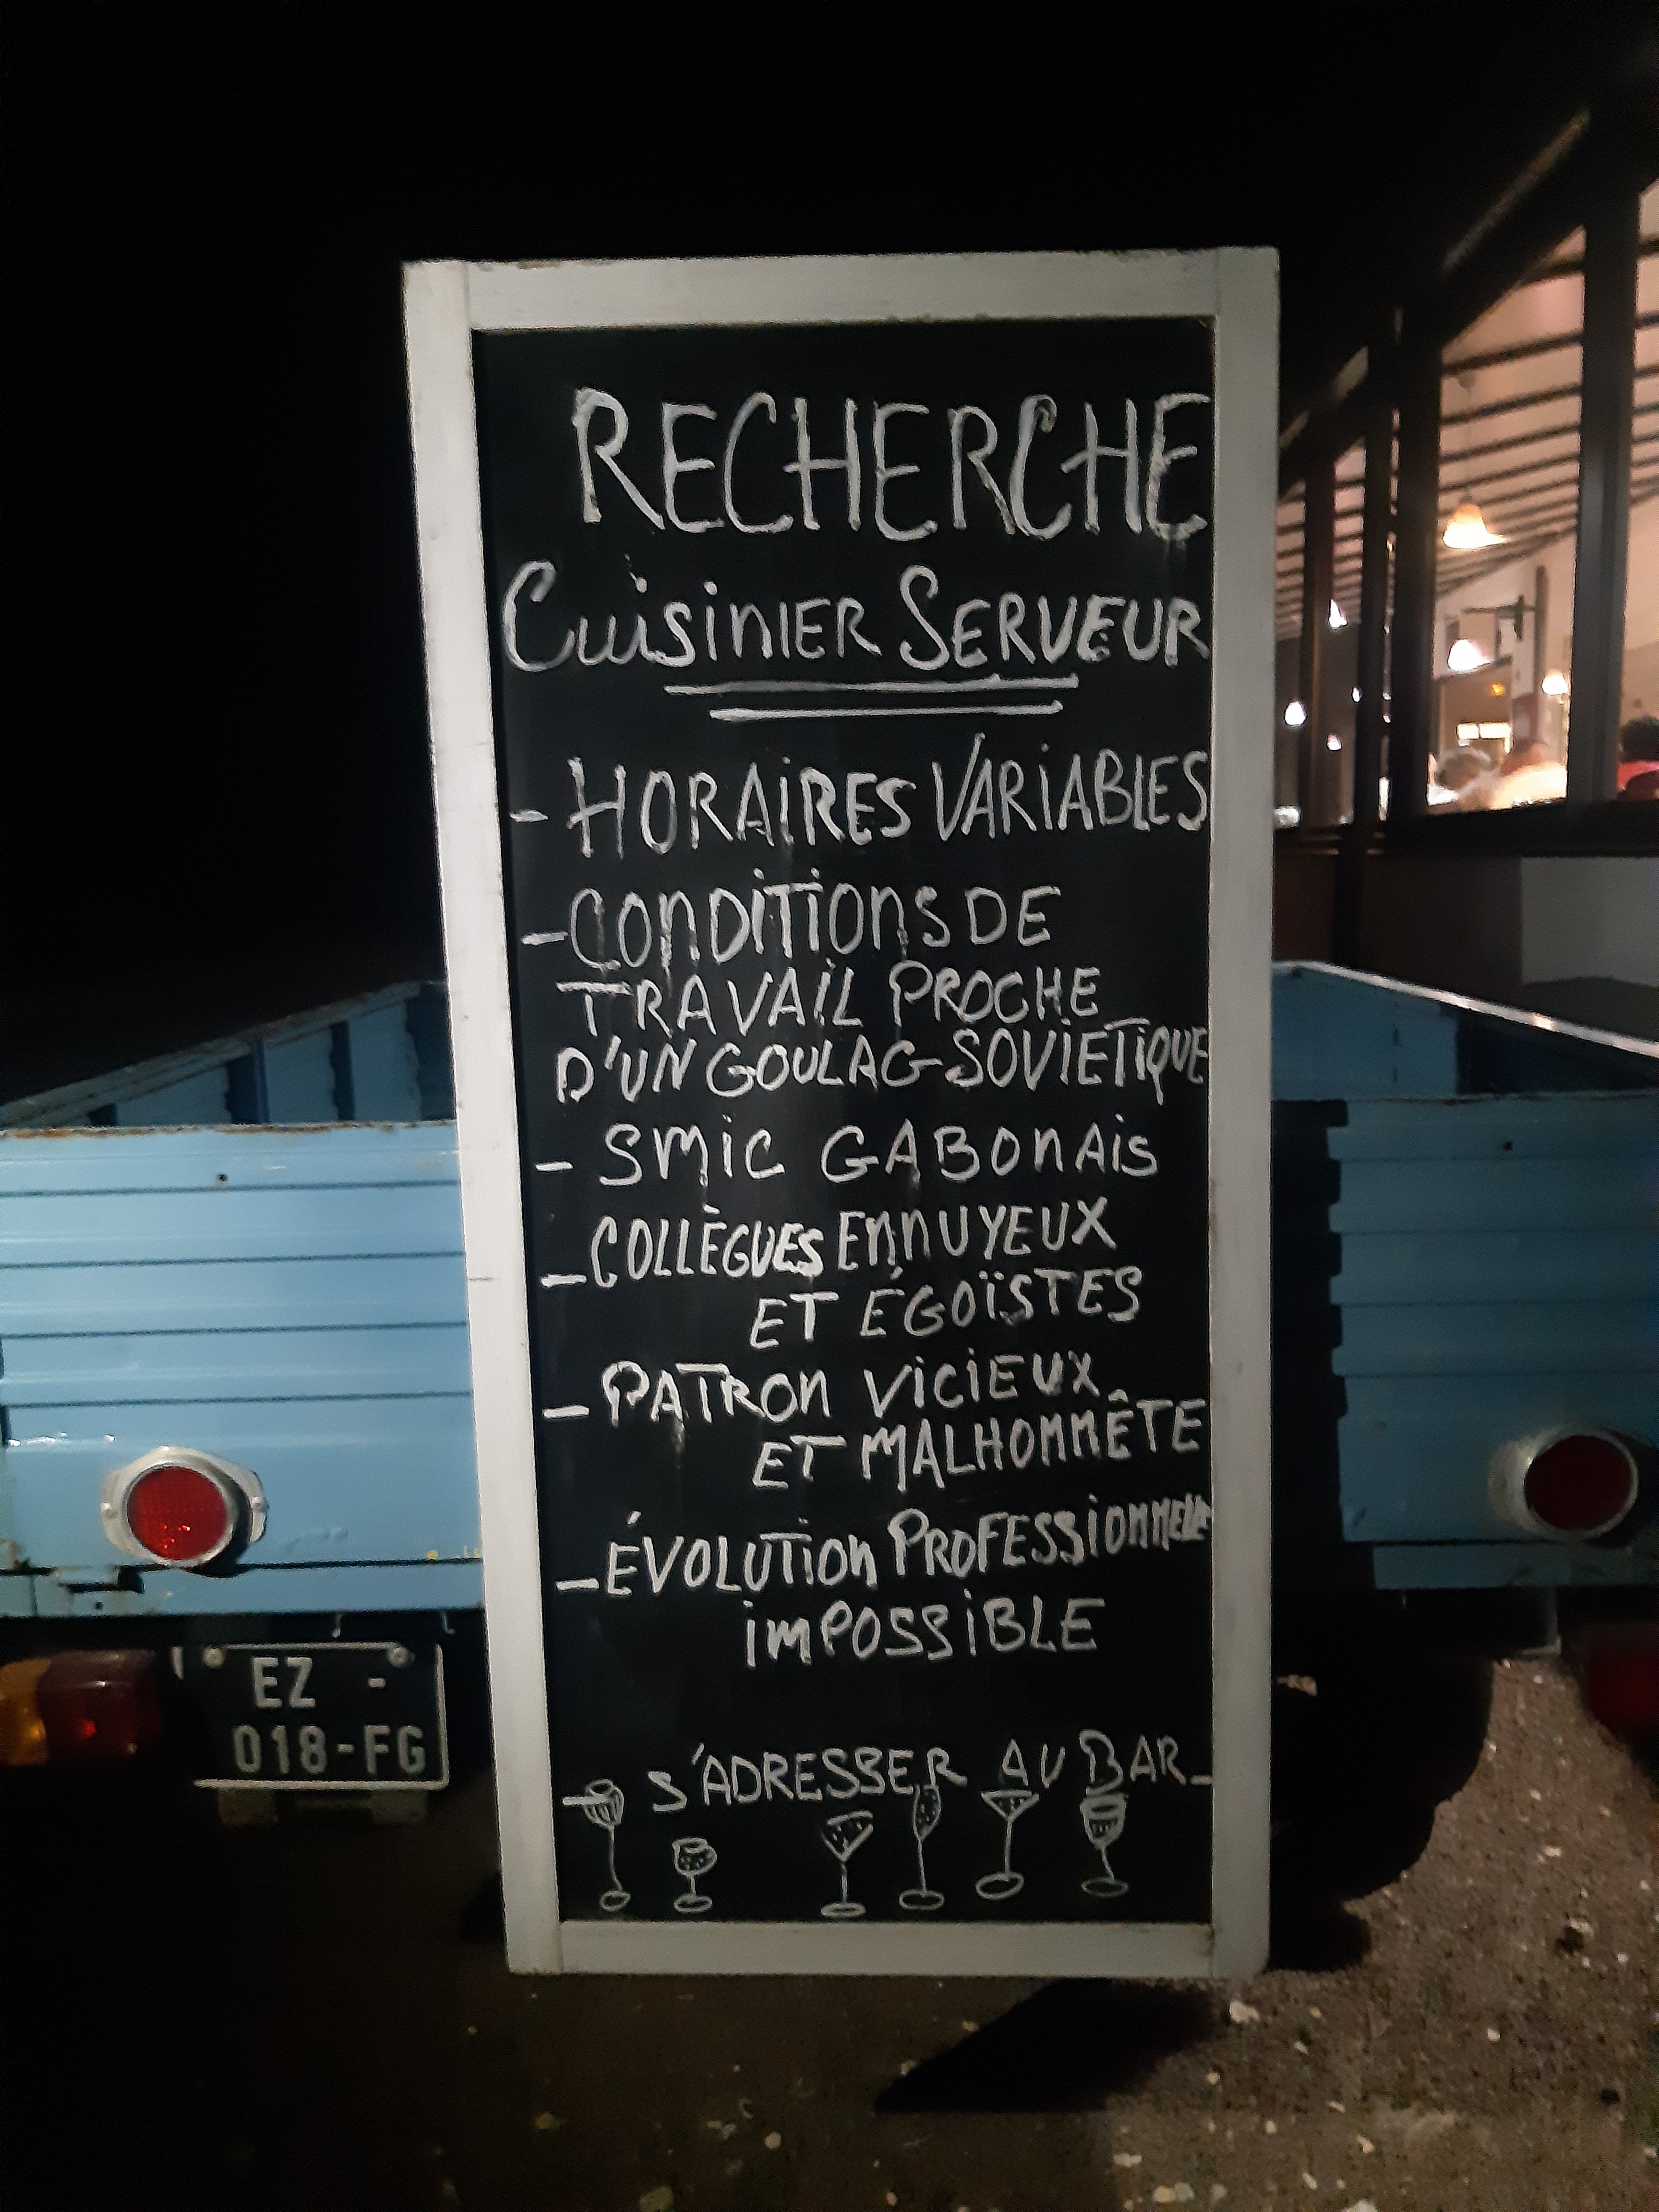 RECHERCHE
CUISINIER SERVEUR
- HORAIRES VARIABLES
- CONDITIONS DE
TRAVAIL PROCHE
D'UN GOULAG SOVIETIQUE
- SMIC GABONAIS
- COLLÈGUES ENNUYEUX
ET ÉGOÏSTES
- PATRON VICIEUX
ET MALHONNÊTE
- ÉVOLUTION PROFESSIONNELLE
IMPOSSIBLE
- S'ADRESSER AU BAR -
EZ -
018-FG